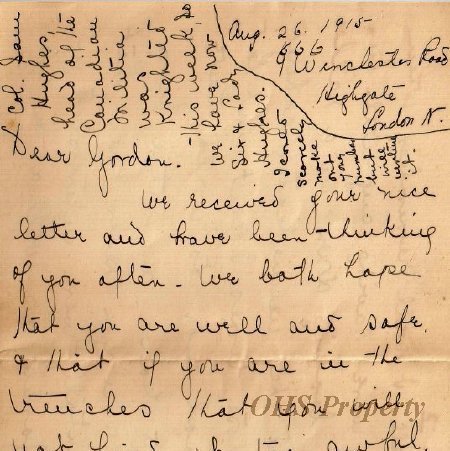 Aug. 26. 1915
9 Winchester Road
Highgate
London N.
Col. Sam
Hughes
head of the
Canadian
militia
was
Knighted
this week. So
we have now
Sir & Lady
Hughes.
I could
scarcely
make
out
your
number
but
will
it.
Dear Gordon.
We received your nice
letter and have been thinking
of you often. We both hope
that you are well and safe.
& that if you are in the
trenches that you will
not find awful.
OHS Property